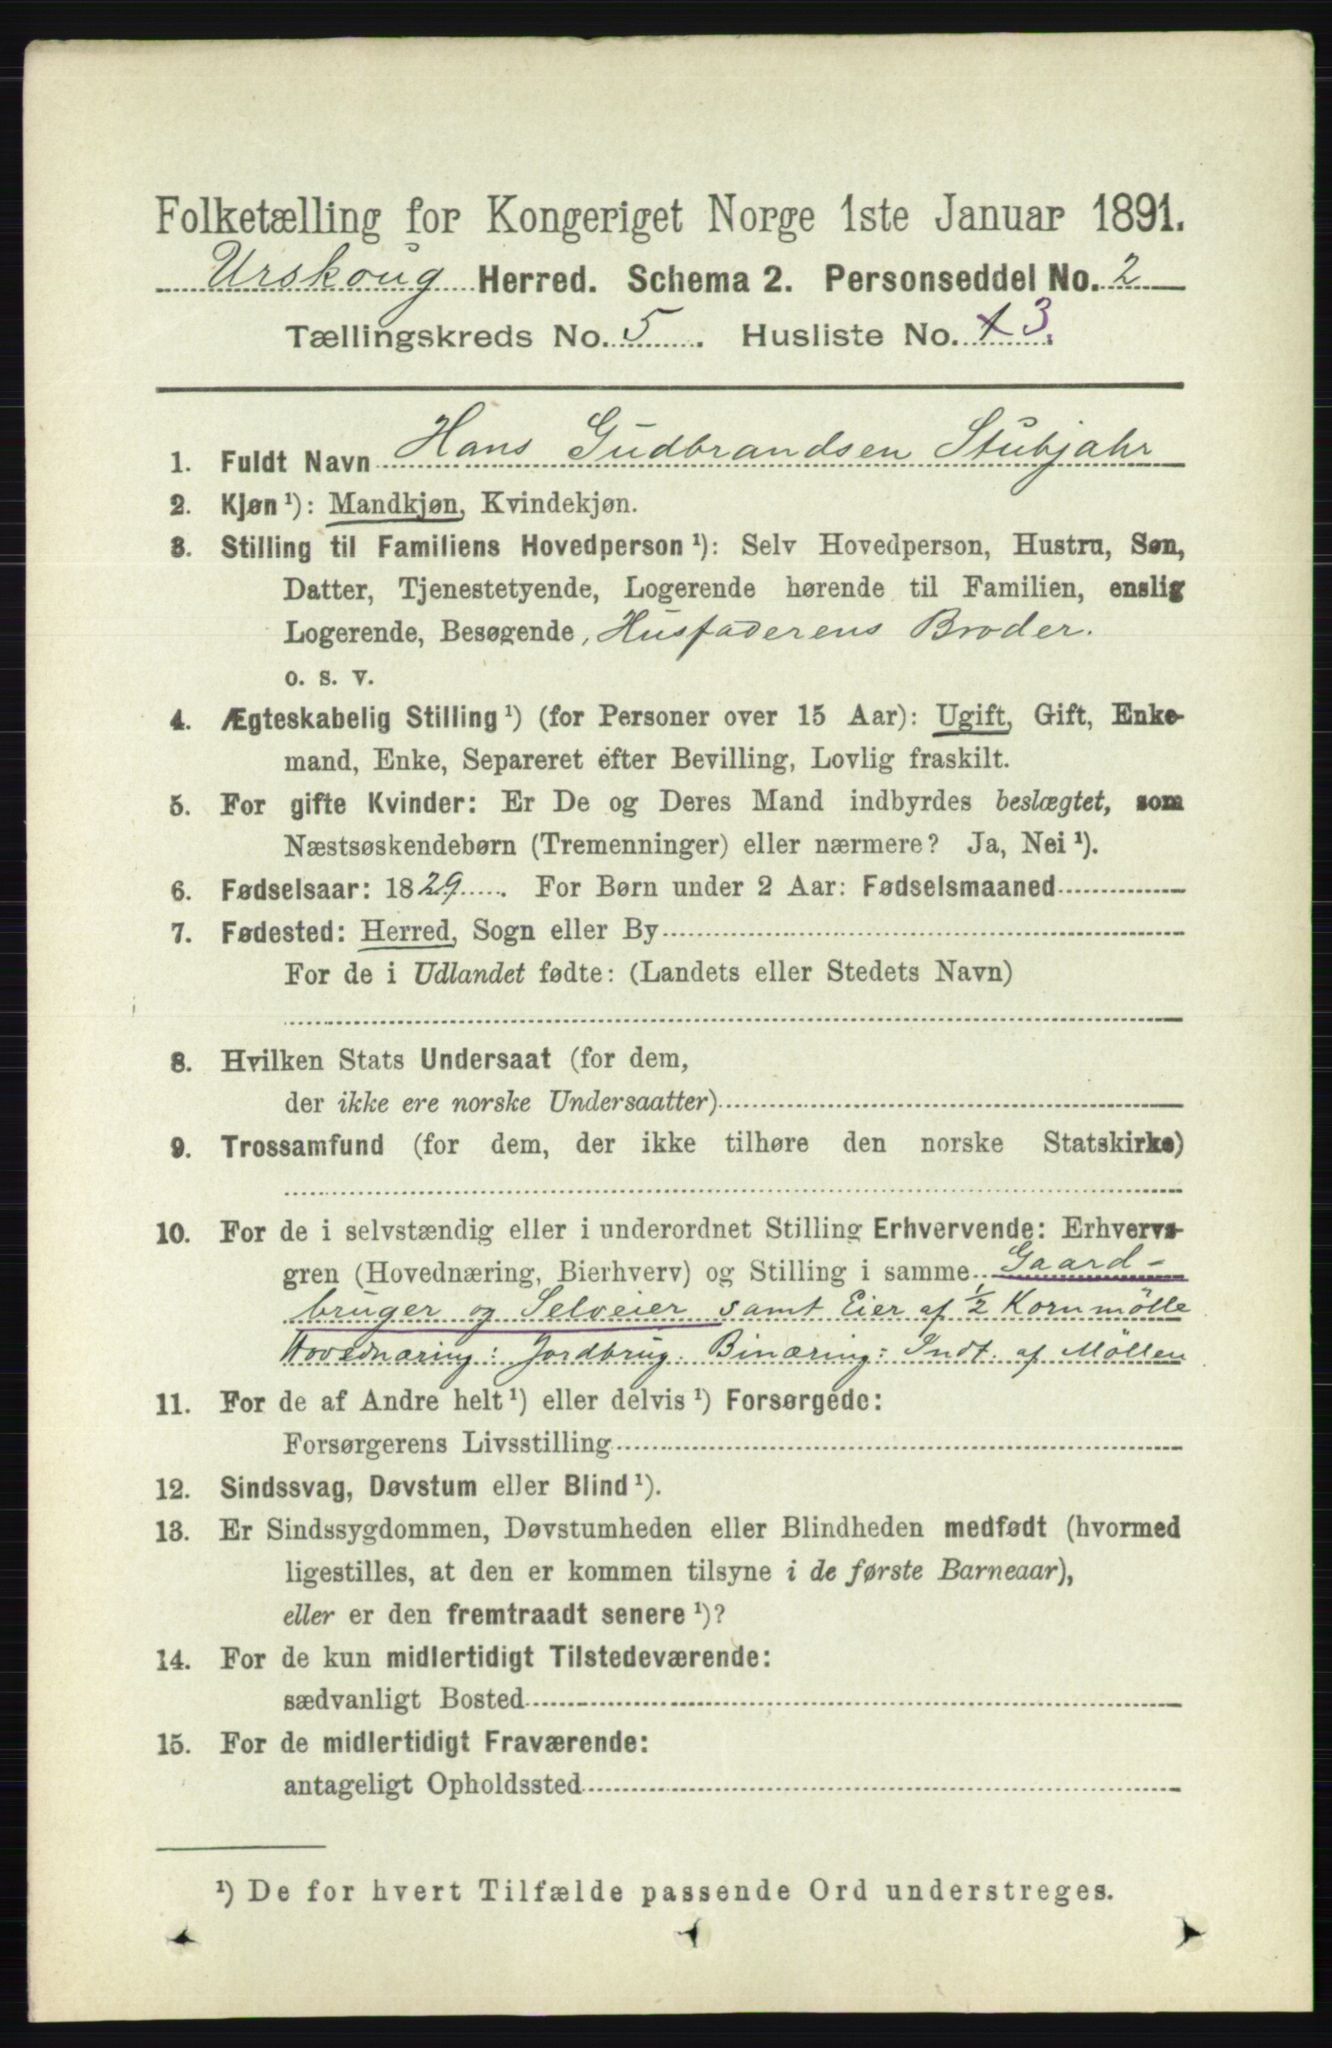 Folketælling for Kongeriget Norge 1ste Januar 1891.
Urskoug Herred. Schema 2. Personseddel No. 2
Tællingskreds No. 5. Husliste No. 3.
1. Fuldt Navn Hans Gudbrandsen Stubjahr
2. Kjøn¹): Mandkjøn, Kvindekjøn.
3. Stilling til Familiens Hovedperson¹): Selv Hovedperson, Hustru, Søn,
Datter, Tjenestetyende, Logerende hørende til Familien, enslig
Logerende, Besøgende, Husfaderens Broder.
o. s. v.
4. Ægteskabelig Stilling¹) (for Personer over 15 Aar): Ugift, Gift, Enke-
mand, Enke, Separeret efter Bevilling, Lovlig fraskilt.
5. For gifte Kvinder: Er De og Deres Mand indbyrdes beslægtet, som
Næstsøskendebørn (Tremenninger) eller nærmere? Ja, Nei¹).
6. Fødselsaar: 1829. For Børn under 2 Aar: Fødselsmaaned
7. Fødested: Herred, Sogn eller By
For de i Udlandet fødte: (Landets eller Stedets Navn)
8. Hvilken Stats Undersaat (for dem,
der ikke ere norske Undersaatter)
9. Trossamfund (for dem, der ikke tilhøre den norske Statskirke)
10. For de i selvstændig eller i underordnet Stilling Erhvervende: Erhvervs-
gren (Hovednæring, Bierhverv) og Stilling i samme Gaard-
bruger og Selveier samt Eier af ½ Kornmölle
Hovednæring: Jordbrug. Binæring: Indt. af Möllen
11. For de af Andre helt¹) eller delvis¹) Forsørgede:
Forsørgerens Livsstilling
12. Sindssvag, Døvstum eller Blind¹).
13. Er Sindssygdommen, Døvstumheden eller Blindheden medfødt (hvormed
ligestilles, at den er kommen tilsyne i de første Barneaar),
eller er den fremtraadt senere¹)?
14. For de kun midlertidigt Tilstedeværende:
sædvanligt Bosted
15. For de midlertidigt Fraværende:
antageligt Opholdssted
¹) De for hvert Tilfælde passende Ord understreges.